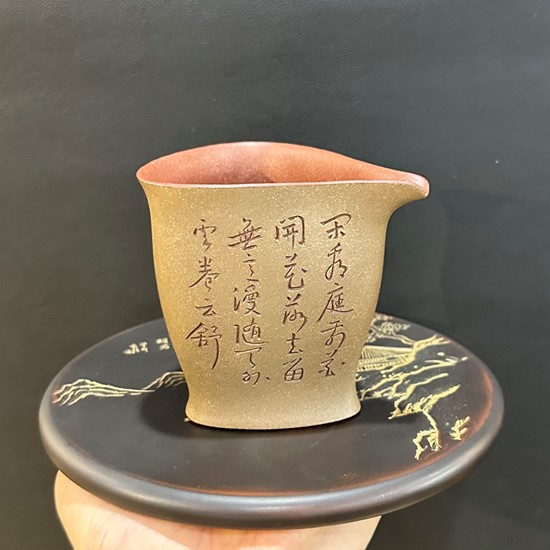 闲看庭前花
開花落去留
無意漫随天外
雲卷云舒